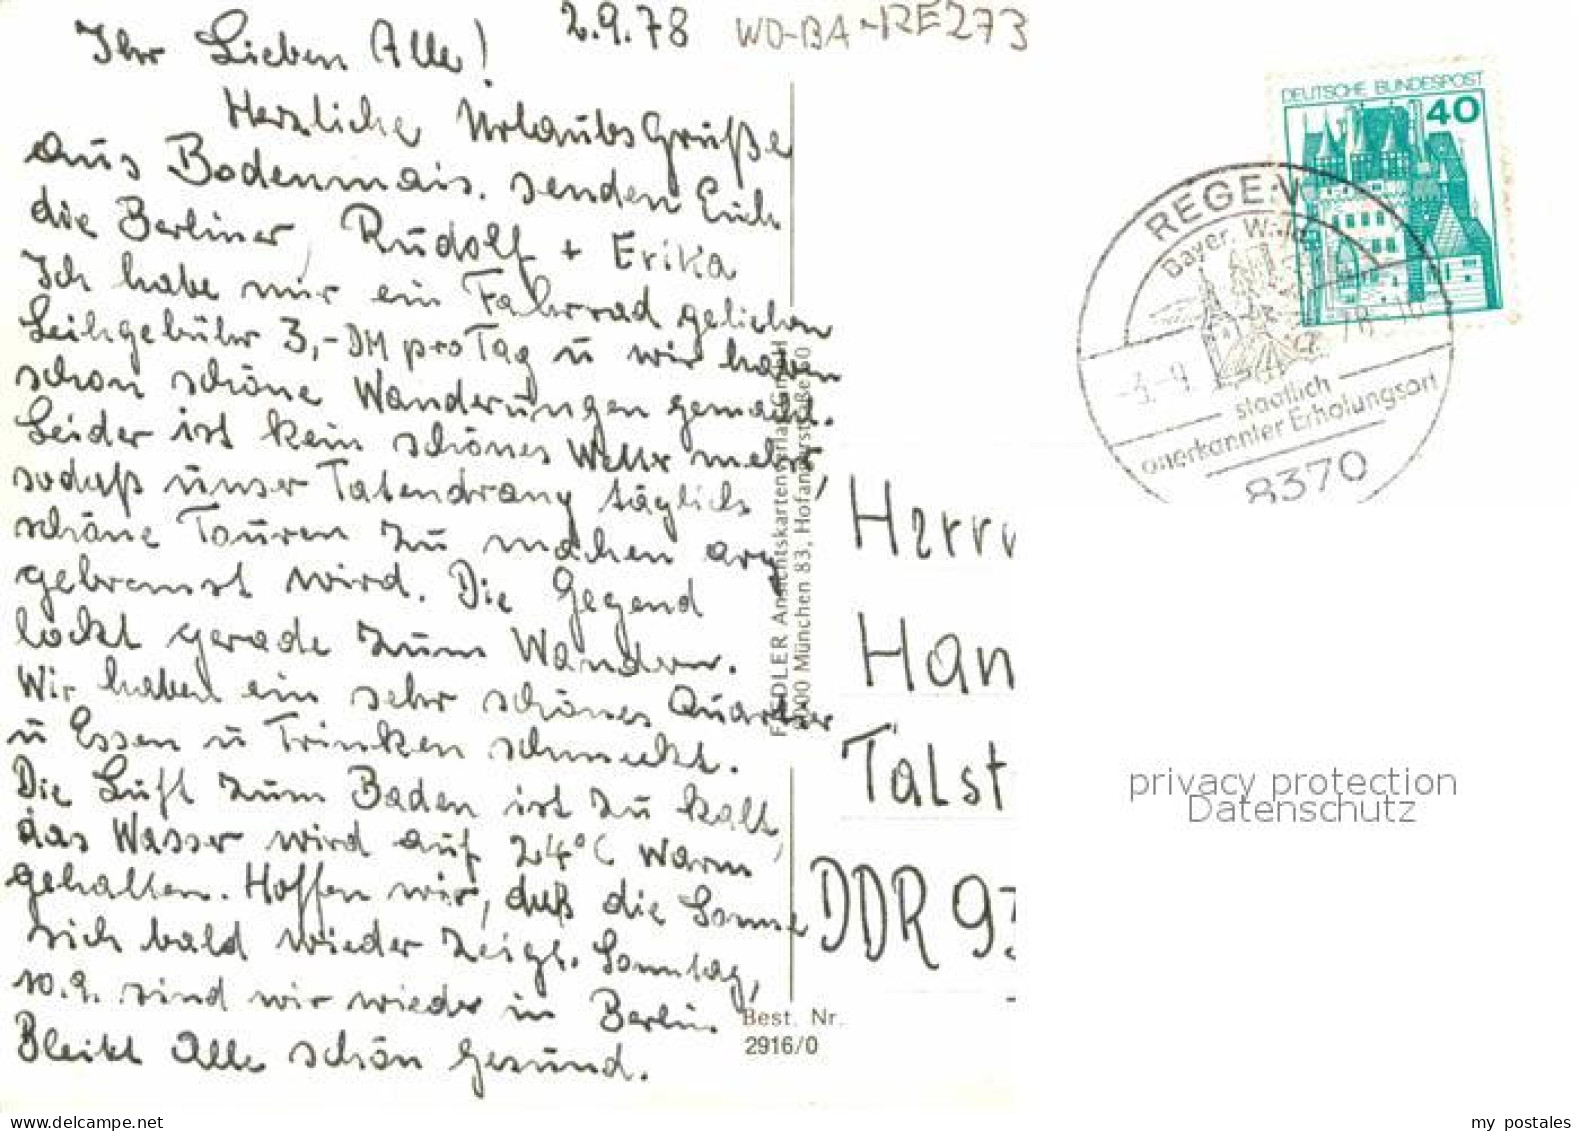 2.9.78 WO-BA-RE273
Ihr Lieben Alle!
Herzliche Urlaubs Grüße
aus Bodenmais. senden Euch
die Berliner, Rudolf + Erika
Ich habe mir ein Fahrrad geliehen
Leihgebühr 3,-DM pro Tag u wir haben
schon schöne Wanderungen gemacht.
Leider ist kein schönes Wetter mehr,
sodaß unser Tatendrang täglich
schöne Touren zu machen arg
gebremst wird. Die Gegend
lockt gerade zum Wandern.
Wir haben ein sehr schönes Quartier
u Essen u Trinken schmeckt.
Die Luft zum Baden ist zu kalt,
das Wasser wird auf 24°C warm
gehalten. Hoffen wir, daß die Sonne
sich bald wieder zeigt. Sonntag,
10.9. sind wir wieder in Berlin.
Bleibt Alle schön gesund.
Ansichtskartenverlag GmbH
München 83, Hofangerstraße
Best. Nr.
2916/0
DEUTSCHE BUNDESPOST
40
REGEN
Bayer. Wald
-3.-9. 78
staatlich
anerkannter Erholungsort
8370
Herrn
Han
Talst
DDR 93
privacy protection
Datenschutz
my-fleamarket.com
my postales